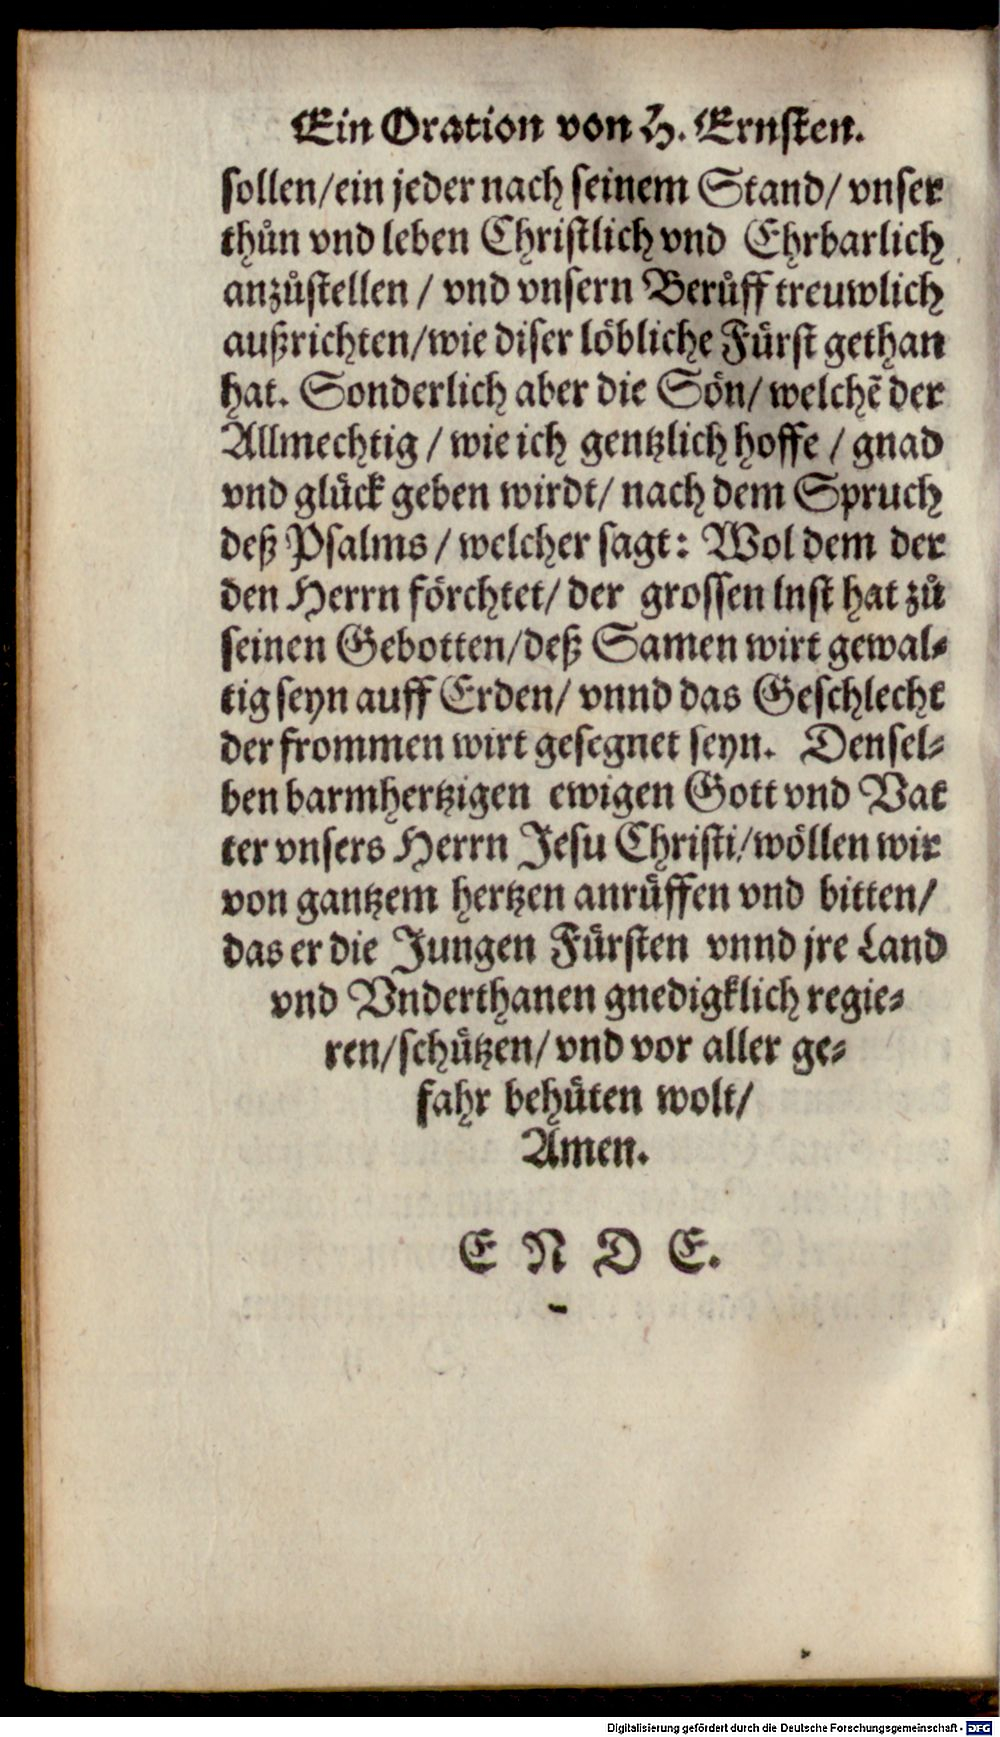 Ein Oration von H. Ernsten.
sollen/ein jeder nach seinem Stand/ vnser
thůn vnd leben Christlich vnd Ehrbarlich
anzůstellen / vnd vnsern Berůff treuwlich
außrichten/wie diser löbliche Fürst gethan
hat. Sonderlich aber die Sön/ welchẽ der
Allmechtig / wie ich gentzlich hoffe / gnad
vnd glück geben wirdt/ nach dem Spruch
deß Psalms / welcher sagt: Wol dem der
den Herrn förchtet/ der grossen lnst hat zů
seinen Gebotten/deß Samen wirt gewal⸗
tig seyn auff Erden/ vnnd das Geschlecht
der frommen wirt gesegnet seyn. Densel⸗
ben barmhertzigen ewigen Gott vnd Vat
ter vnsers Herrn Jesu Christi/wöllen wir
von gantzem hertzen anrüffen vnd bitten/
das er die Jungen Fürsten vnnd jre Land
vnd Vnderthanen gnedigklich regie⸗
ren/schützen/ vnd vor aller ge⸗
fahr behüten wolt/
Amen.
E N D E.
Digitalisierung gefördert durch die Deutsche Forschungsgemeinschaft - DFG